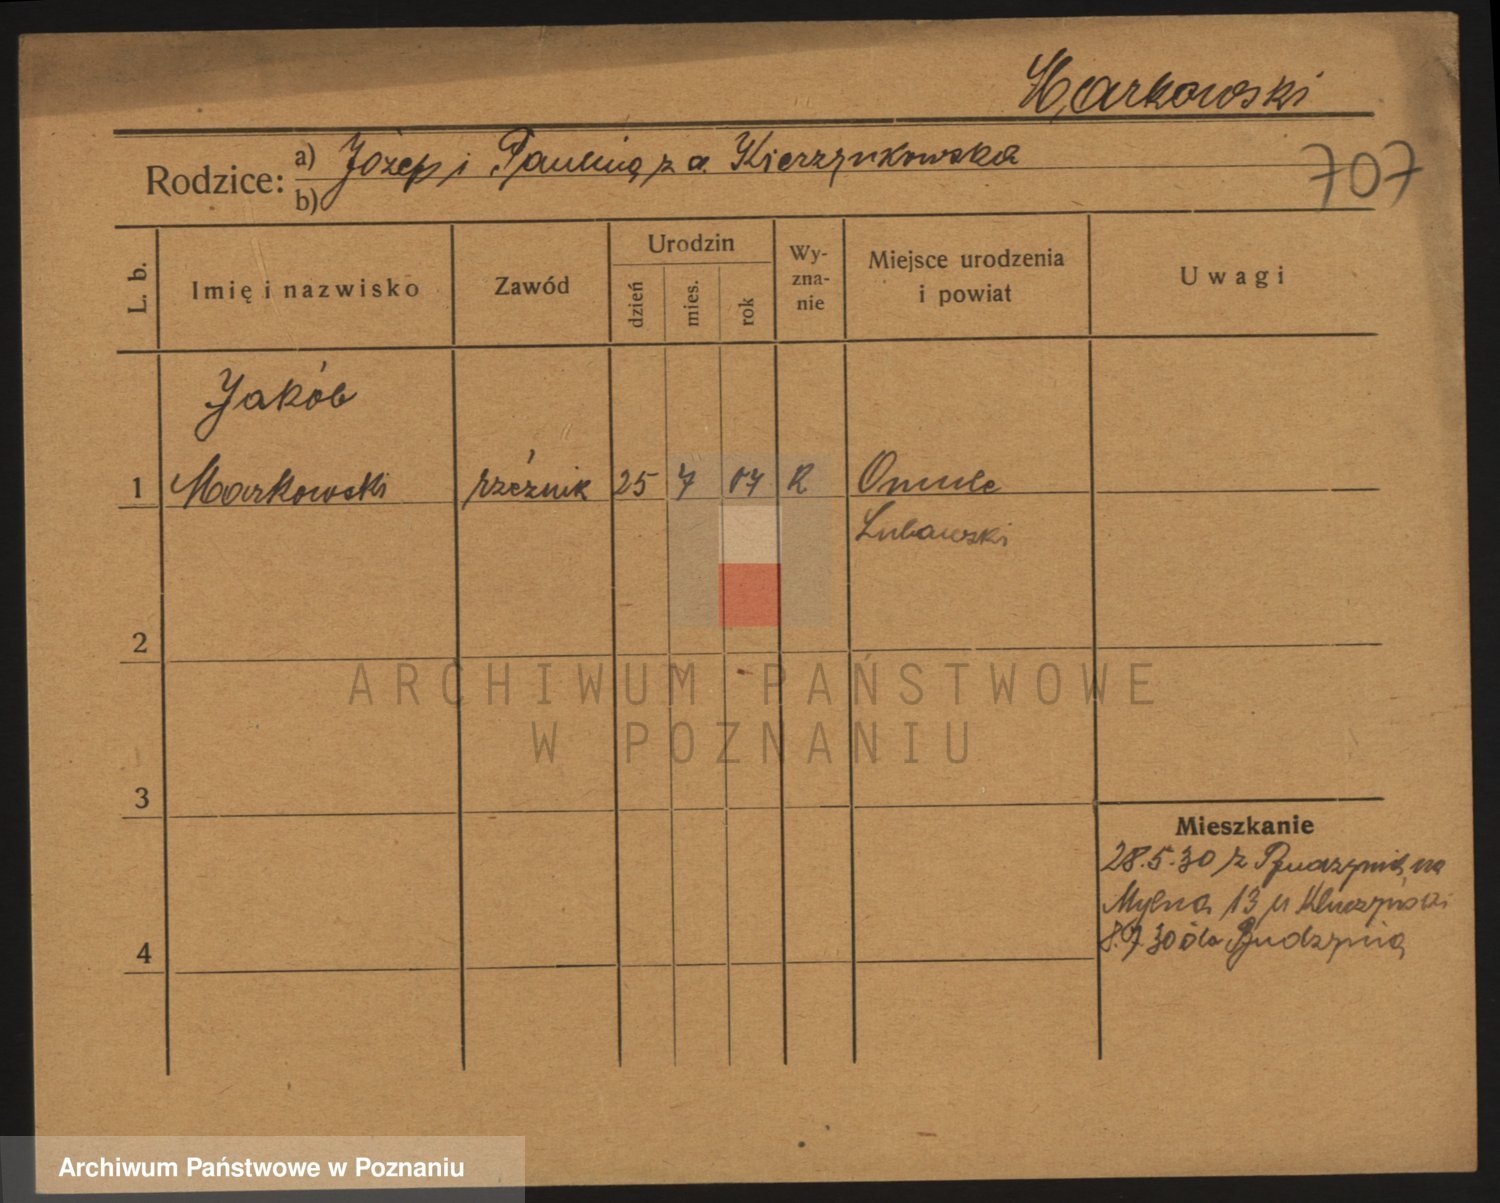 Markowski
Rodzice:
a) Józef i Paulina z d. Kierzynkowska
b)
707
L. b.
Imię i nazwisko
Zawód
Urodzin
dzień
mies.
rok
Wy-
zna-
nie
Miejsce urodzenia
i powiat
Uwagi
Jakób
1 Markowski rzeźnik 25 7 07 R Omule
Lubawski
2
3
4
Mieszkanie
28.5.30 z Budzynia na
Mylna 13 u
8.7.30 do Budzynia
ARCHIWUM PAŃSTWOWE
W POZNANIU
Archiwum Państwowe w Poznaniu